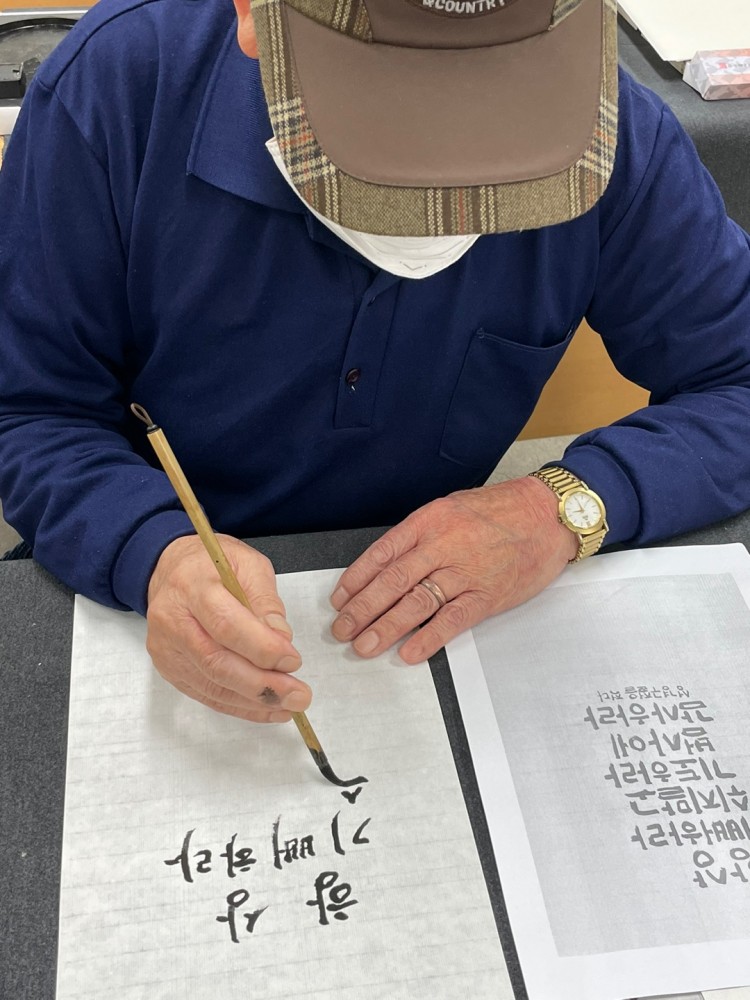 &COUNTRY
항상
기뻐하라
항상
뻐하라
쉬지말고
기도하라
범사에
감사하라
성경구절을